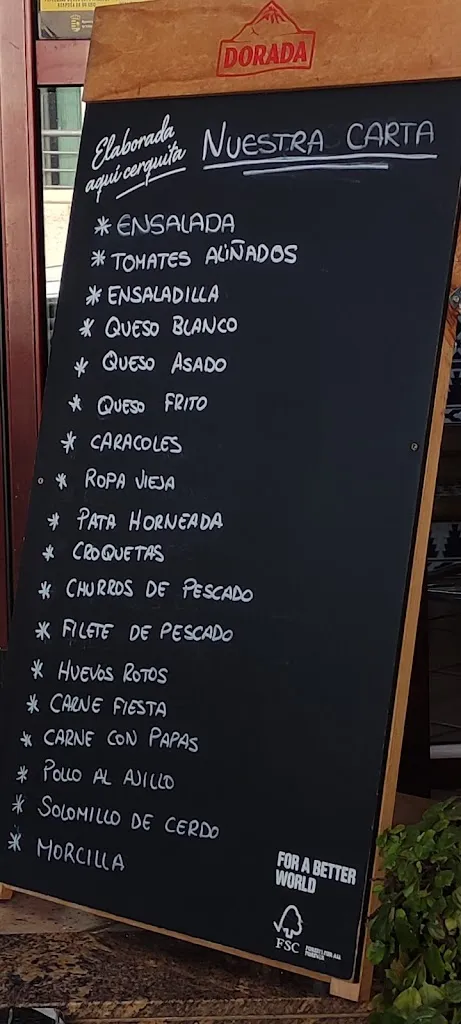 DORADA
Elaborada
aquí cerquita
NUESTRA CARTA
* ENSALADA
* TOMATES ALIÑADOS
* ENSALADILLA
* QUESO BLANCO
* QUESO ASADO
* QUESO FRITO
* CARACOLES
* ROPA VIEJA
* PATA HORNEADA
* CROQUETAS
* CHURROS DE PESCADO
* FILETE DE PESCADO
* HUEVOS ROTOS
* CARNE FIESTA
* CARNE CON PAPAS
* POLLO AL AJILLO
* SOLOMILLO DE CERDO
* MORCILLA
FOR A BETTER
WORLD
FSC
FORESTS FOR ALL
FOREVER